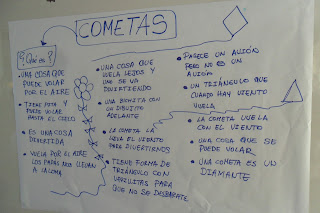 COMETAS
¿Qué es?
• UNA COSA QUE
PUEDE VOLAR
POR EL AIRE
• TIENE PITA Y
PUEDE VOLAR
HASTA EL CIELO
• ES UNA COSA
DIVERTIDA
• VUELA POR EL AIRE
LOS PAPÁS NOS LLEVAN
A LA LOMA
• UNA COSA QUE
VUELA LEJOS Y
UNO SE VA
DIVIRTIENDO
• UNA BICHITA CON
UN DIBUJITO
ADELANTE
• LA COMETA LA
LLEVA EL VIENTO PARA
DIVERTIRNOS
• TIENE FORMA DE
TRIÁNGULO CON
VARILLITAS PARA
QUE NO SE DESBARATE
• PARECE UN AVIÓN
PERO NO ES UN
AVIÓN
• UN TRIÁNGULO QUE
CUANDO HAY VIENTO
VUELA
• LA COMETA VUELA
CON EL VIENTO
• UNA COSA QUE SE
PUEDE VOLAR
• UNA COMETA ES UN
DIAMANTE